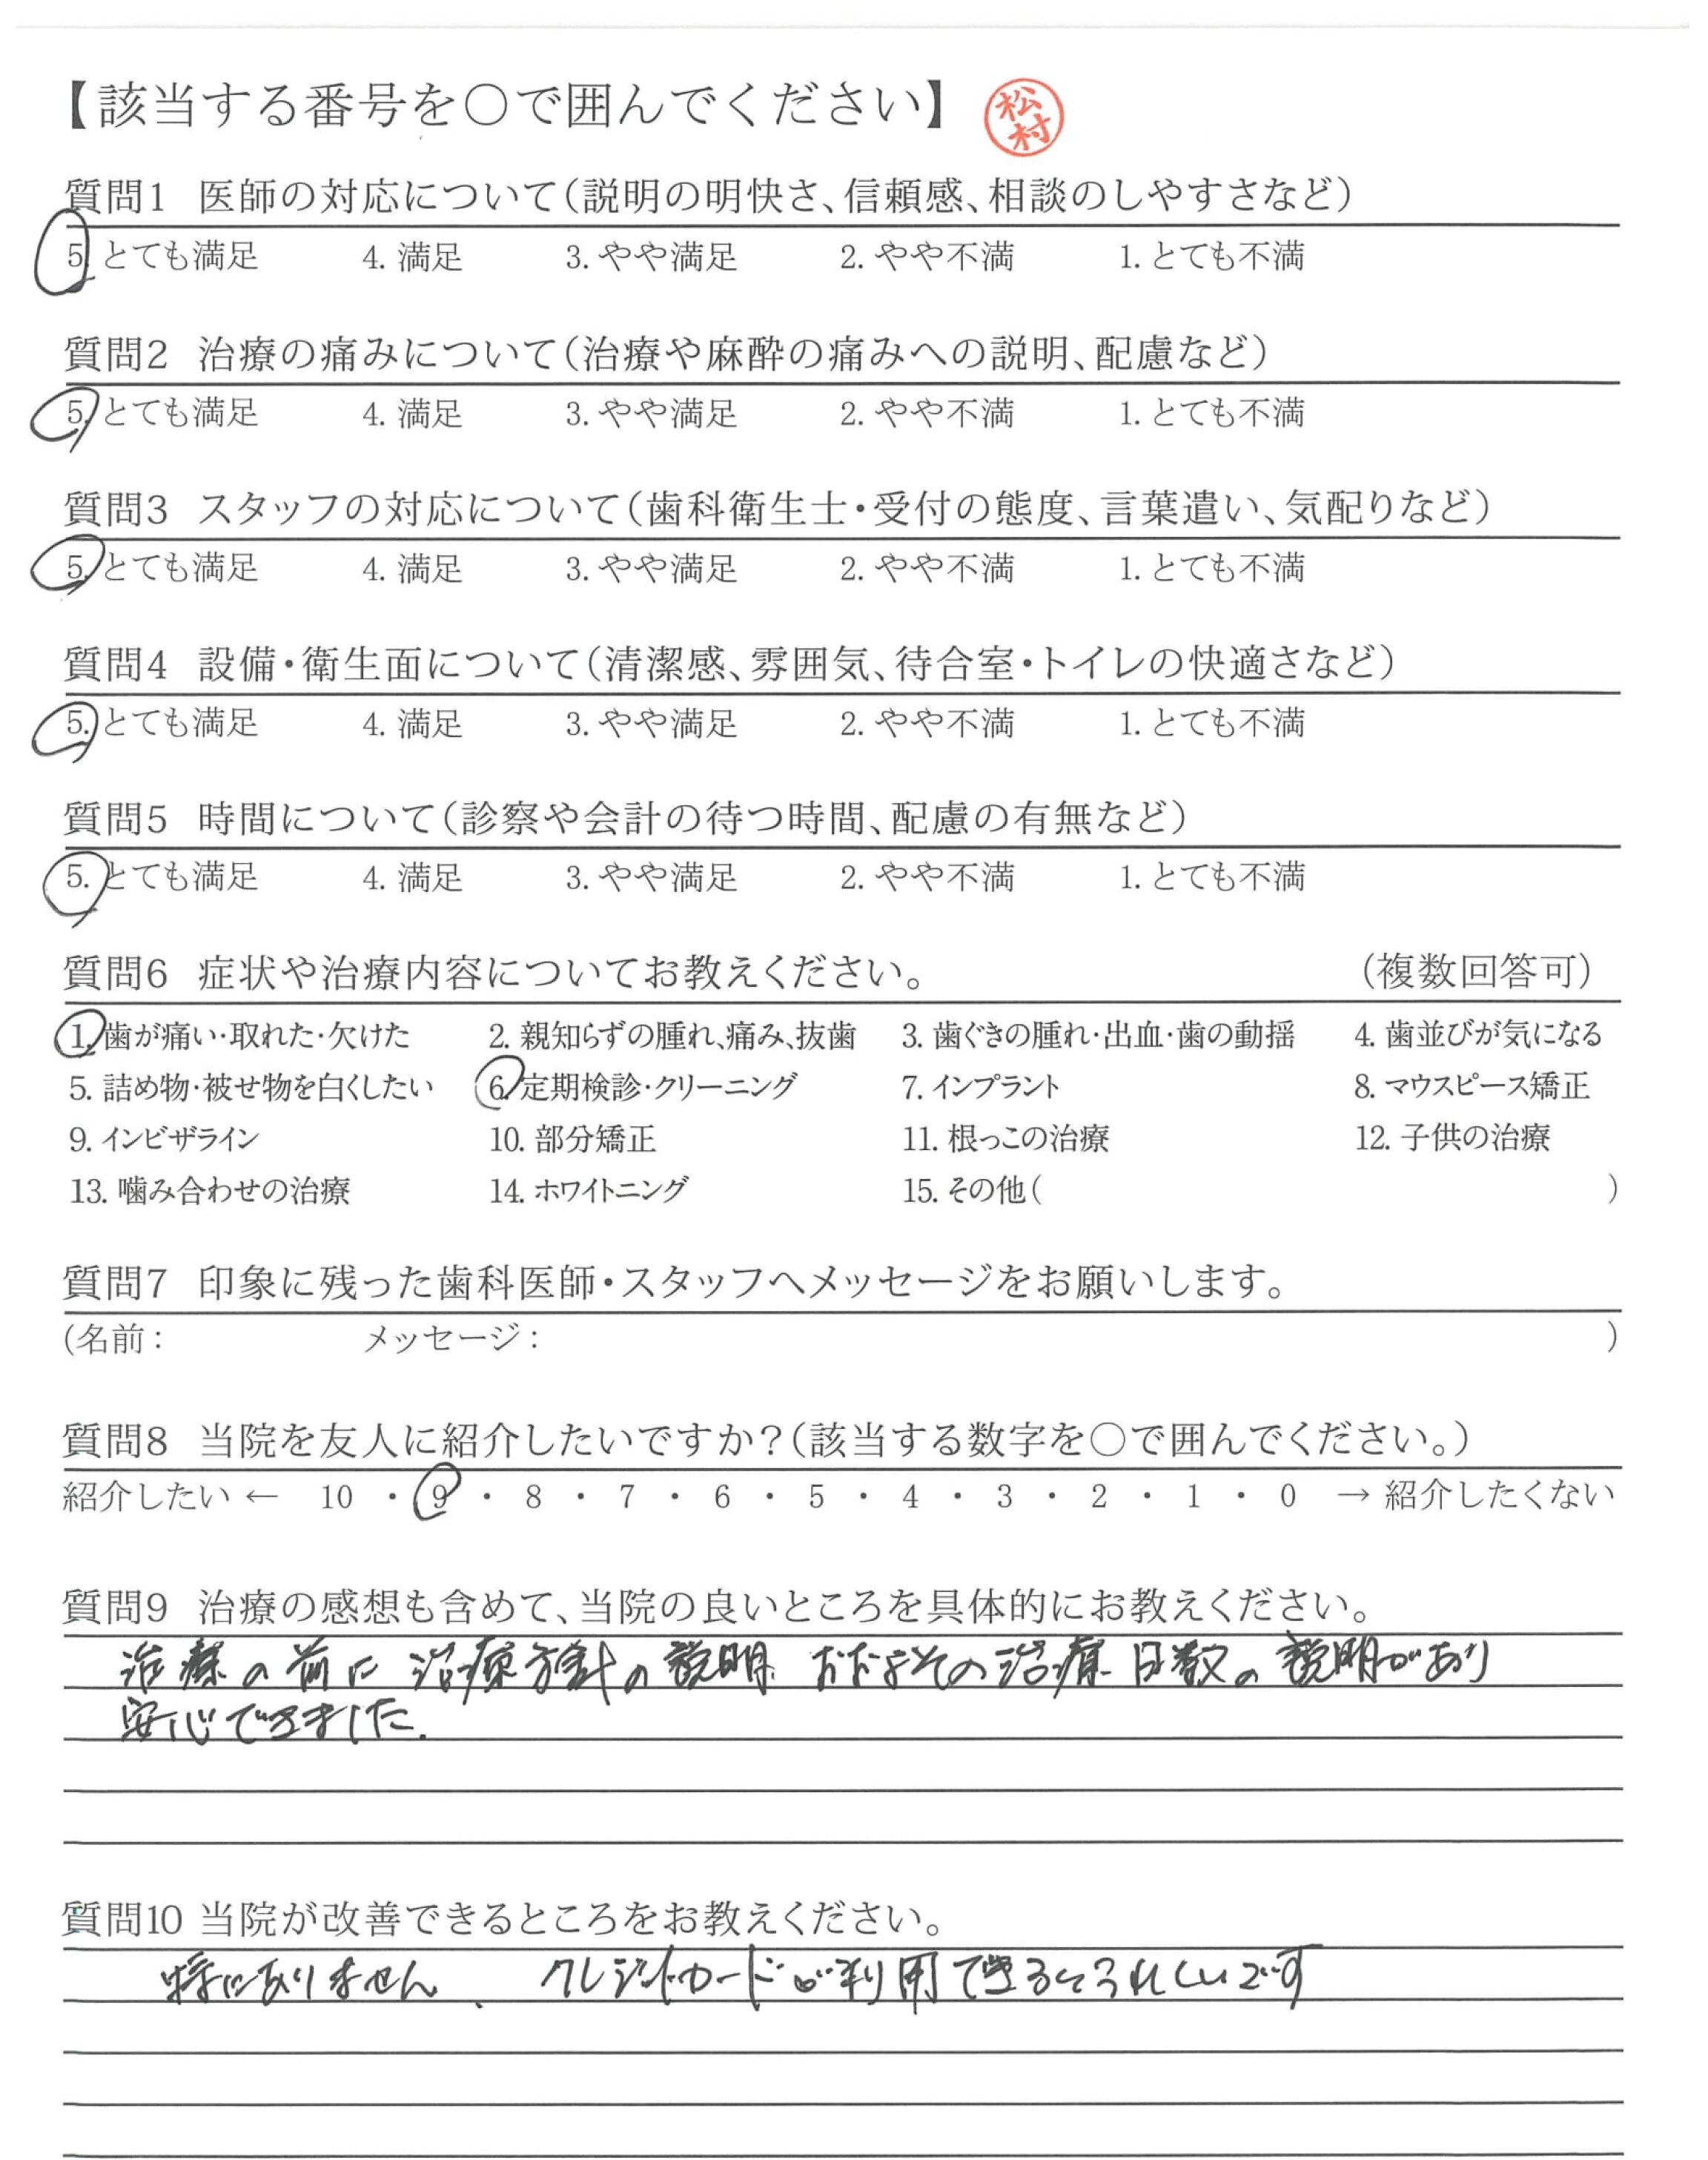 【該当する番号を○で囲んでください】 松村
質問1 医師の対応について(説明の明快さ、信頼感、相談のしやすさなど)
5. とても満足 4. 満足 3. やや満足 2. やや不満 1. とても不満
質問2 治療の痛みについて(治療や麻酔の痛みへの説明、配慮など)
5. とても満足 4. 満足 3. やや満足 2. やや不満 1. とても不満
質問3 スタッフの対応について(歯科衛生士・受付の態度、言葉遣い、気配りなど)
5. とても満足 4. 満足 3. やや満足 2. やや不満 1. とても不満
質問4 設備・衛生面について(清潔感、雰囲気、待合室・トイレの快適さなど)
5. とても満足 4. 満足 3. やや満足 2. やや不満 1. とても不満
質問5 時間について(診察や会計の待つ時間、配慮の有無など)
5. とても満足 4. 満足 3. やや満足 2. やや不満 1. とても不満
質問6 症状や治療内容についてお教えください。 (複数回答可)
1. 歯が痛い・取れた・欠けた 2. 親知らずの腫れ、痛み、抜歯 3. 歯ぐきの腫れ・出血・歯の動揺 4. 歯並びが気になる
5. 詰め物・被せ物を白くしたい 6. 定期検診・クリーニング 7. インプラント 8. マウスピース矯正
9. インビザライン 10. 部分矯正 11. 根っこの治療 12. 子供の治療
13. 噛み合わせの治療 14. ホワイトニング 15. その他( )
質問7 印象に残った歯科医師・スタッフへメッセージをお願いします。
(名前: メッセージ: )
質問8 当院を友人に紹介したいですか?(該当する数字を○で囲んでください。)
紹介したい ← 10 ・ 9 ・ 8 ・ 7 ・ 6 ・ 5 ・ 4 ・ 3 ・ 2 ・ 1 ・ 0 → 紹介したくない
質問9 治療の感想も含めて、当院の良いところを具体的にお教えください。
治療の前に治療方針の説明、おおよその治療日数の説明があり
安心できました。
質問10 当院が改善できるところをお教えください。
特にありません、クレジットカードが利用できるとうれしいです